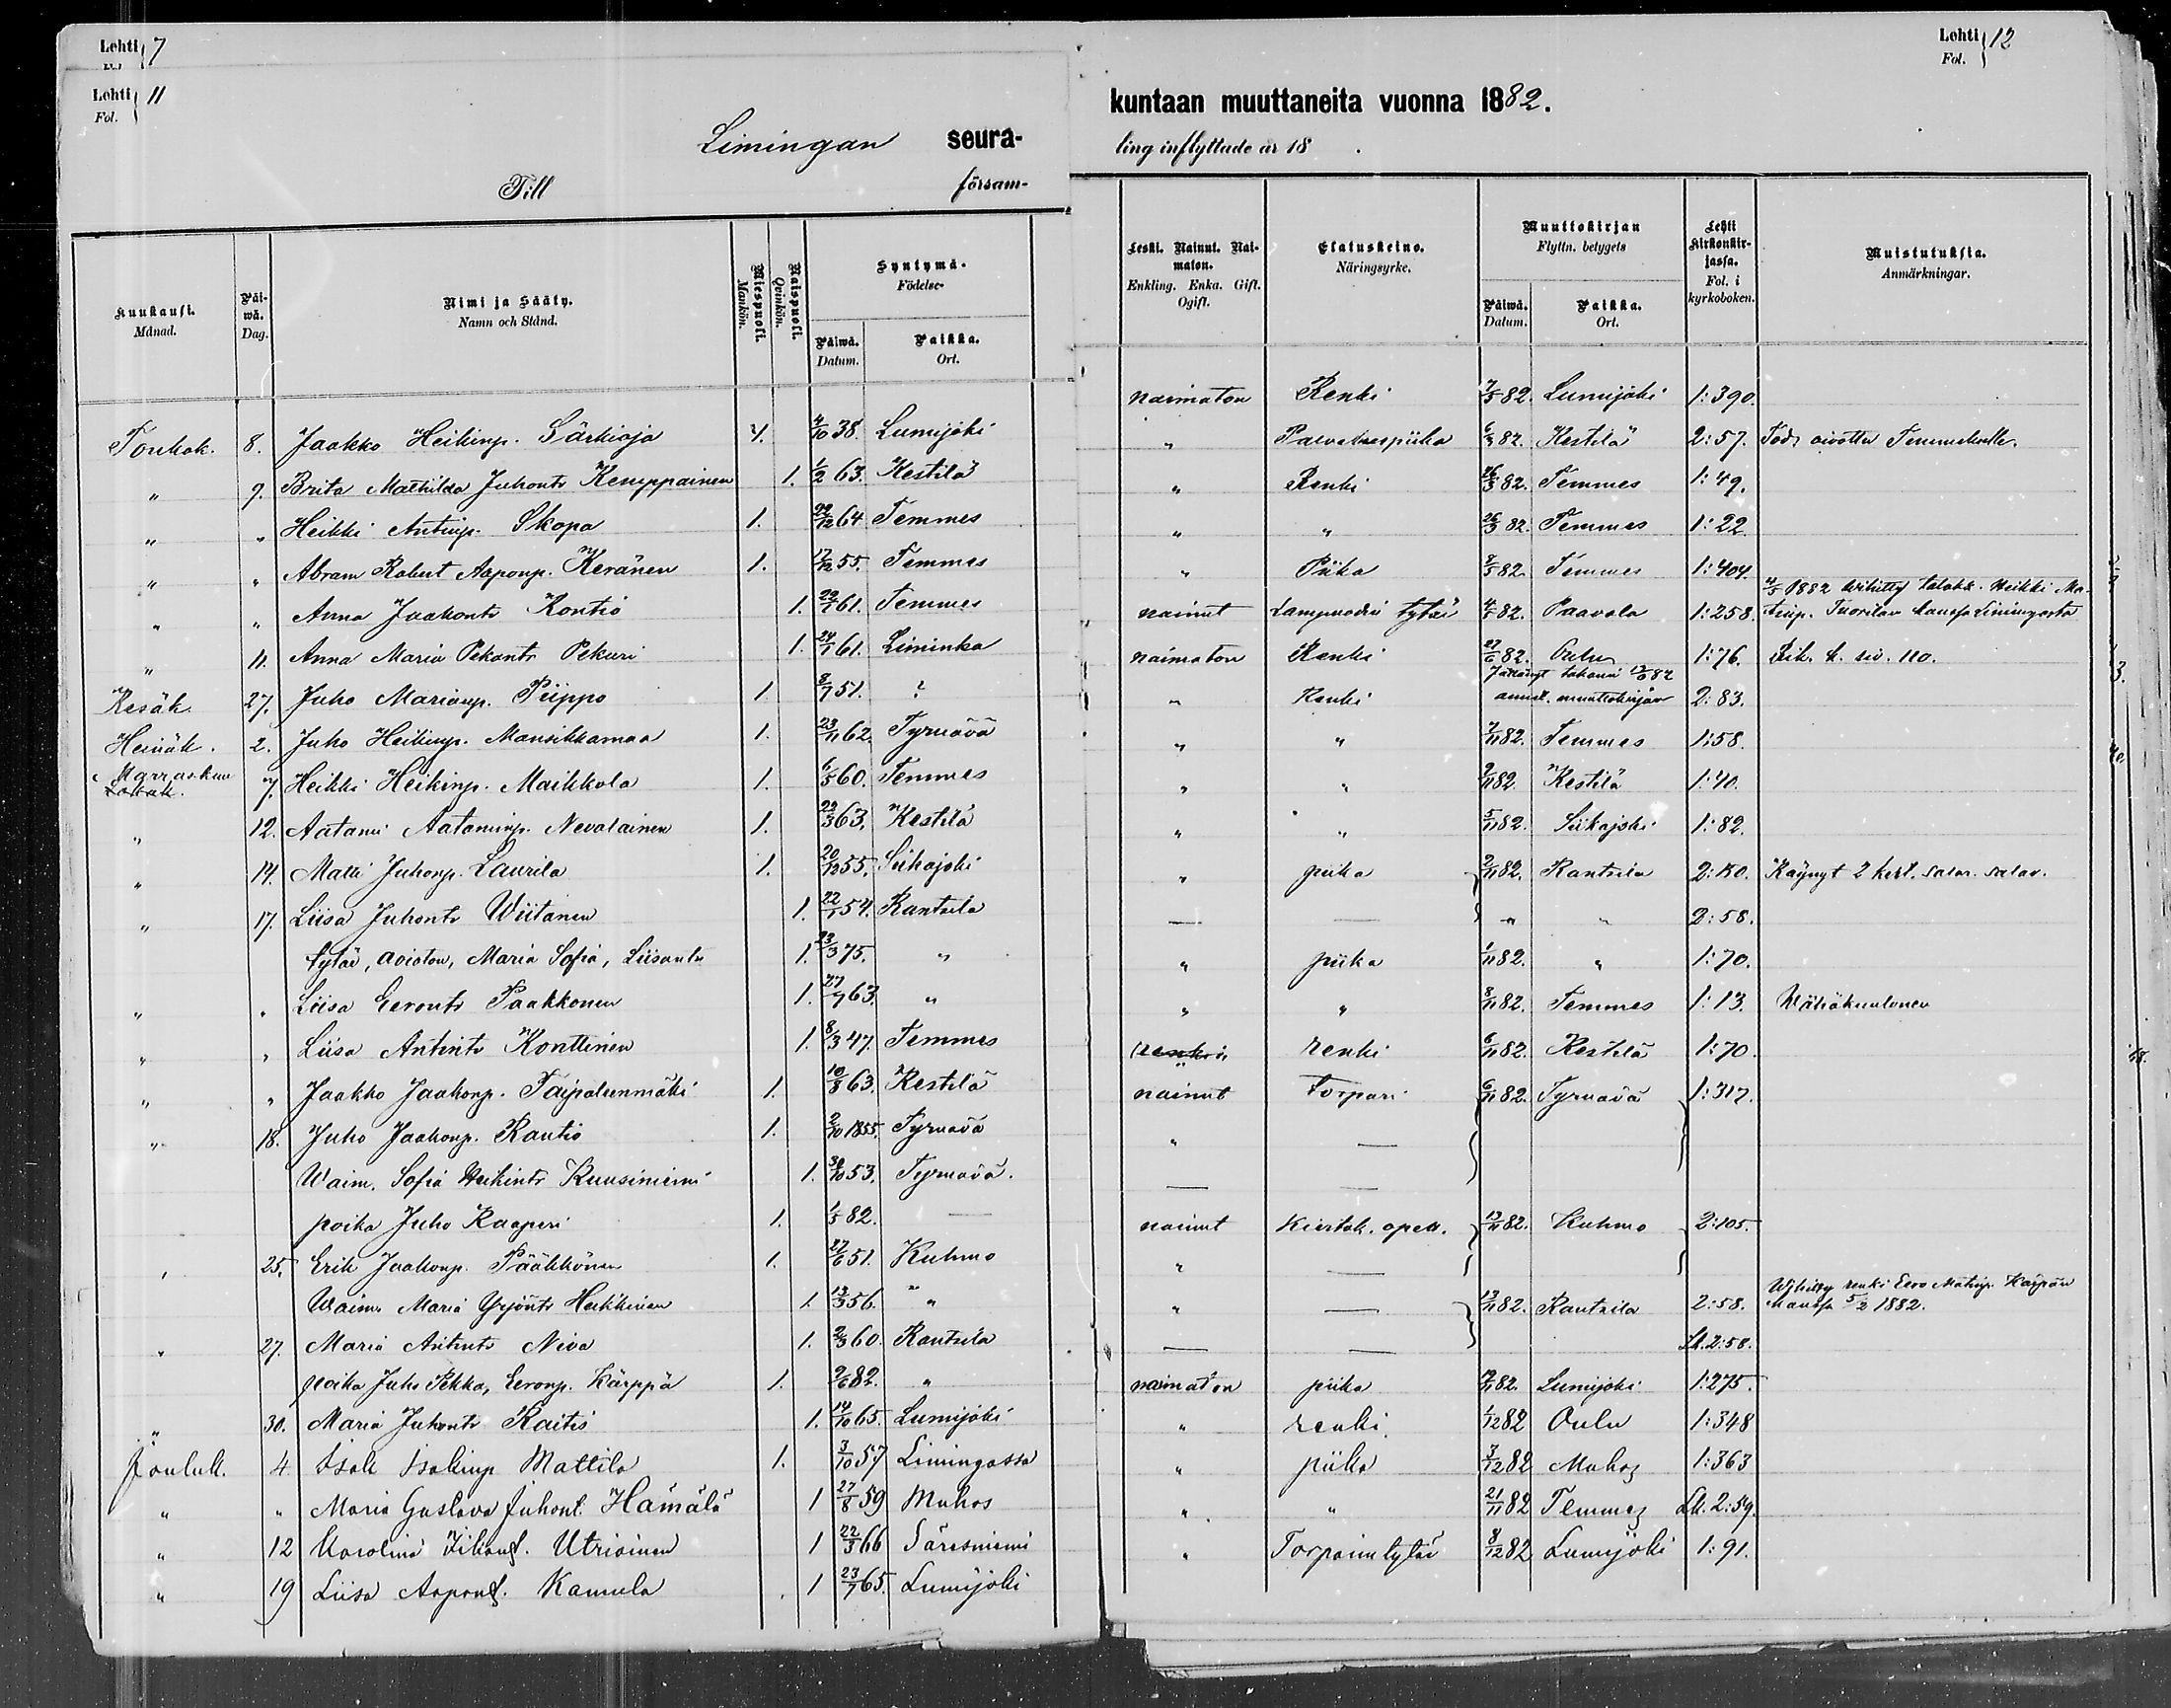 Lehti 7
Lehti 11
Fol.
Lehti 12
Fol.
Limingan seura-
kuntaan muuttaneita vuonna 1882.
Till försam-
ling inflyttade år 18 .
Kuukausi. Månad. Päi-wä. Dag. Nimi ja Sääty. Namn och Stånd. Miespuoli. Mankön. Naispuoli. Qvinkön. Syntymä- Födelse- Päiwä. Datum. Paikka. Ort.
Leski. Nainut. Nai-maton. Enkling. Enka. Gift. Ogift. Elatuskeino. Näringsyrke. Muuttokirjan Flyttn. betygets Päiwä. Datum. Paikka. Ort. Lehti Kirkonkir-jassa. Fol. i kyrkoboken. Muistutuksia. Anmärkningar.
Toukok. 8. Jaakko Heikinp. Särkioja 1. 4/10 38. Lumijoki naimaton Renki 7/5 82. Lumijoki 1:390.
" 9. Brita Mathilda Juhontr Kemppainen 1. 1/2 63. Kestilä " Palveluspiika 82. Kestilä 2:57.
" " Heikki Antinp. Skopa 1. 22/12 64 Temmes " Renki 26/3 82. Temmes 1:49.
" " Abram Robert Aaponp. Keränen 1. 17/12 55. Temmes " " 26/3 82. Temmes 1:22.
" " Anna Jaakontr Kontio 1. 61. Temmes " Piika 8/5 82. Temmes 1:404.
" 11. Anna Maria Pekantr Pekuri 1. 24/1 61. Liminka nainut Lampuodin tytär 4/5 82. Paavola 1:258. 1882 wihitty talokk. Heikki Ma-
Kesäk. 27. Juho Marianp. Piippo 1. 8/7 51. ? naimaton Renki 27/6 82. Oulu 1:76. Rik. k. siv. 110.
Heinäk. 2. Juho Heikinp. Mansikkamaa 1. 23/11 62. Tyrnävä " Renki muuttokirjan 2:83.
Marraskuu 7. Heikki Heikinp. Maikkola 1. 6/5 60. Temmes " " 7/11 82. Temmes 1:58.
" 12. Aatami Aataminp. Nevalainen 1. 22/3 63. Kestilä " " 9/11 82. Kestilä 1:40.
" 14. Matti Juhonp. Laurila 1. 20/12 55. Siikajoki " " 5/11 82. Siikajoki 1:82.
" 17. Liisa Juhontr Wiitanen 1. 22/1 54. Rantsila " piika 2/11 82. Rantsila 2:50. Käynyt 2 kert. salav.
tytär, avioton, Maria Sofia, Liisantr 1. 23/3 75. " — — " " 2:58.
" " Liisa Eerontr Paakkonen 1. 27/7 63. " " piika 1/11 82. " 1:70.
" " Liisa Antintr Konttinen 1. 8/3 47. Temmes " " 8/11 82. Temmes 1:13. Wähäkuuloinen
" " Jaakko Jaakonp. Taipaleenmäki 1. 10/8 63. Kestilä renki 6/11 82. Kestilä 1:70.
" 18. Juho Jaakonp. Rautio 1. 2/10 1855. Tyrnävä nainut torpari 6/11 82. Tyrnävä 1:317.
Waim. Sofia Heikintr Kuusiniemi 1. 30/10 53. Tyrnävä. " —
poika Juho Kaaperi 1. 1/5 82. — — —
" 25. Erik Jaakonp. Pääkkönen 1. 27/6 51. Kuhmo nainut kiertok. opett. 13/11 82. Kuhmo 2:105.
Waimo Maria Yrjöntr Heikkinen 1. 12/3 56. " " —
" 27. Maria Antintr Niva 1. 2/3 60. Rantsila " — 13/11 82. Rantsila 2:58. Wihitty renki Eero Matinp. Kärpän kanssa 5/2 1882.
poika Juho Pekka, Eeronp. Kärppä 1. 2/6 82. " — — Lk. 2:58.
" 30. Maria Juhontr Raitio 1. 14/10 65. Lumijoki naimaton piika 82. Lumijoki 1:275.
Jouluk. 4. Isak Isakinp Mattila 1. 3/10 57 Limingassa " renki 1/12 82 Oulu 1:348
" " Maria Gustava Juhont. Hämälä 1 27/8 59 Muhos " piika 3/12 82 Muhos 1:363
" 12 Karolina Utriainen 1 22/3 66 Säresniemi " " 21/11 82 Temmes Lk. 2:59.
" 19 Liisa Aapont. Kamula 1 23/7 65. Lumijoki " Torparin tytär 8/12 82 Lumijoki 1:91.